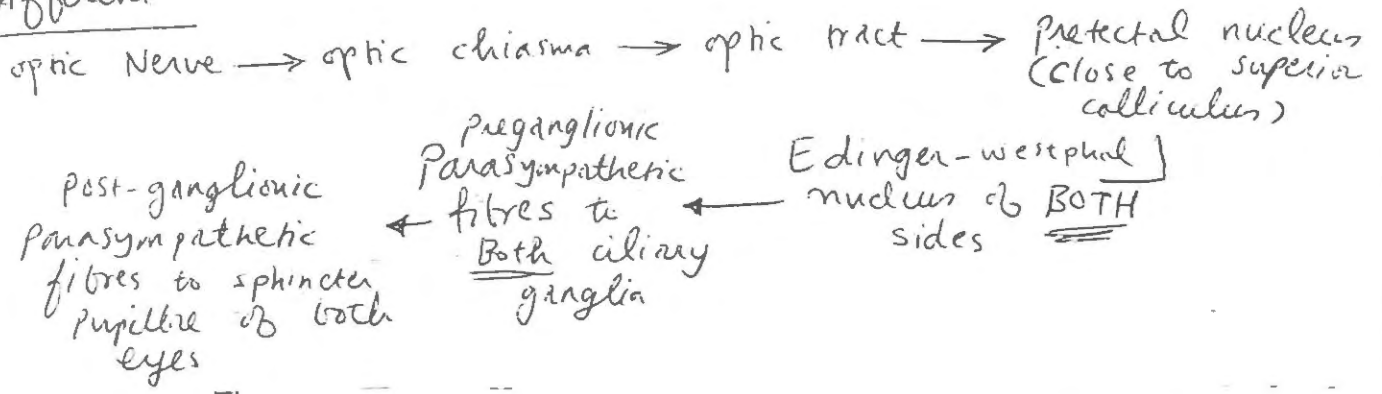 Afferent
optic Nerve → optic chiasma → optic tract → Pretectal nucleus
(close to superior
colliculus)
Edinger-westphal
nucleus of BOTH
sides
preganglionic
Parasympathetic
← fibres to ←
Both ciliary
ganglia
post-ganglionic
parasympathetic
fibres to sphincter
pupillae of both
eyes